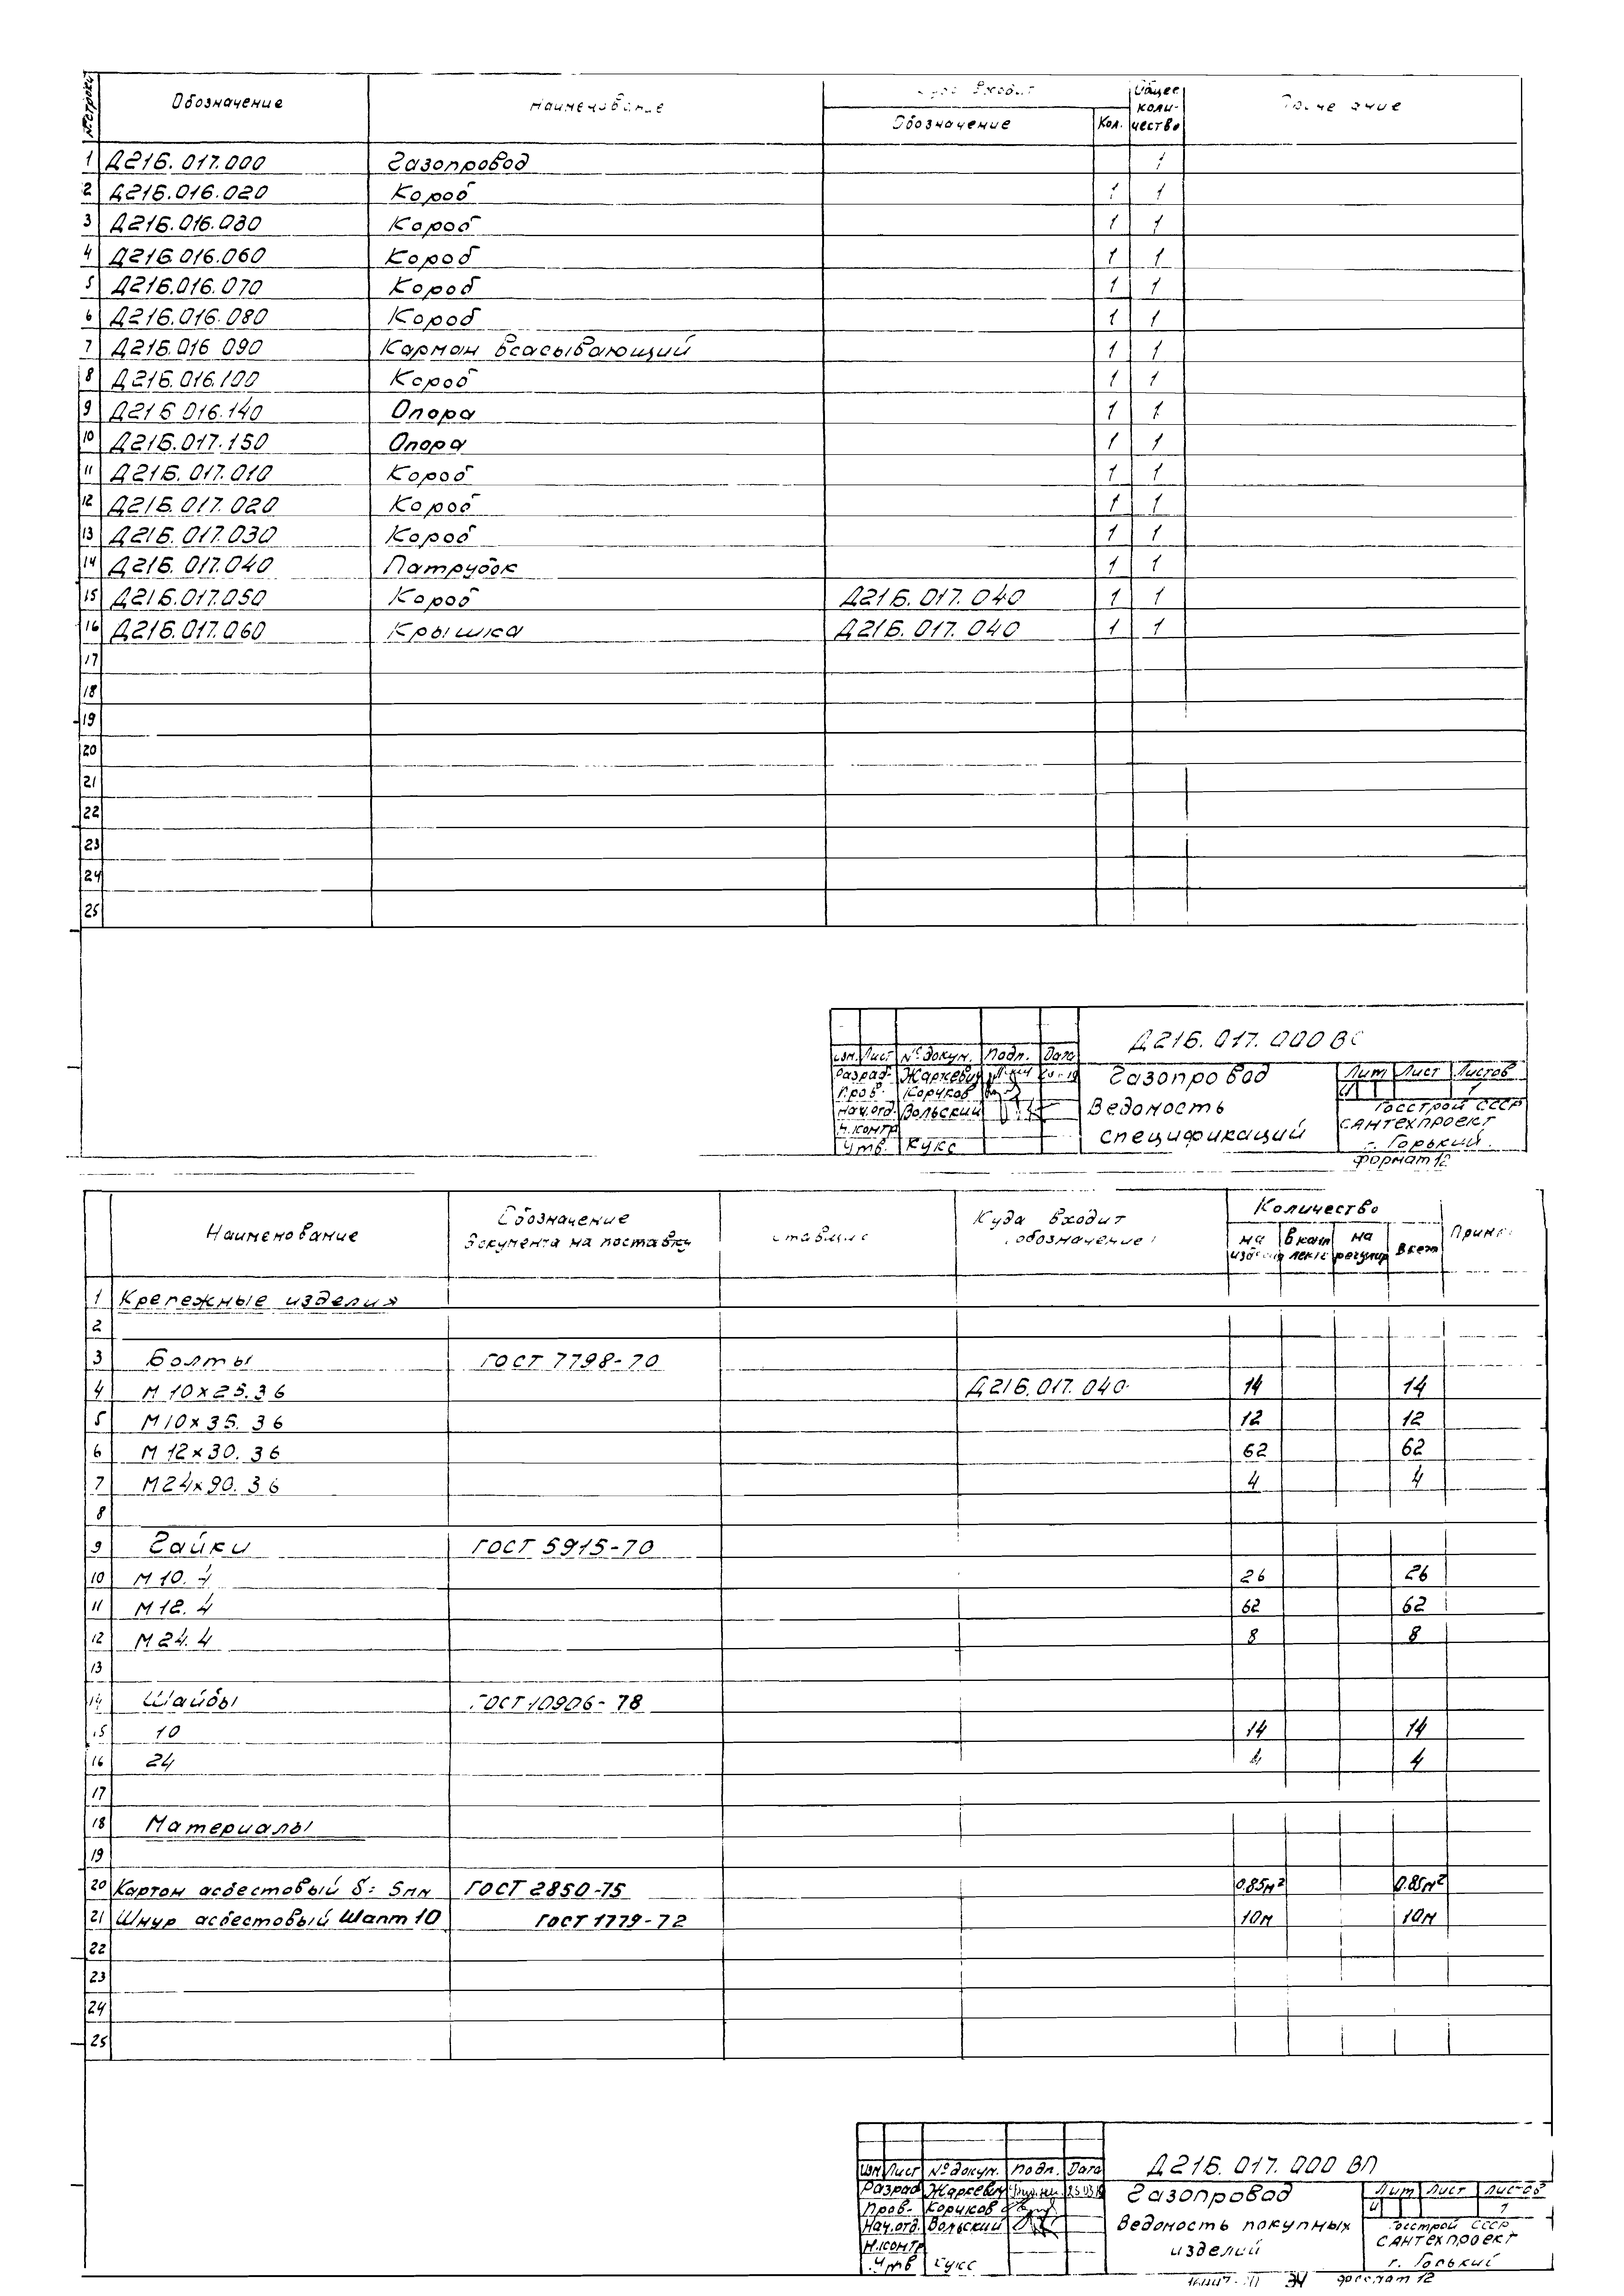 № строки Обозначение Наименование Куда входит Общее количество
Обозначение Кол.
1 Д216.017.000 Газопровод 1
2 Д216.016.020 Короб 1 1
3 Д216.016.030 Короб 1 1
4 Д216.016.060 Короб 1 1
5 Д216.016.070 Короб 1 1
6 Д216.016.080 Короб 1 1
7 Д216.016 090 Карман всасывающий 1 1
8 Д216.016.100 Короб 1 1
9 Д216 016.140 Опора 1 1
10 Д216.017.150 Опора 1 1
11 Д216.017.010 Короб 1 1
12 Д216.017.020 Короб 1 1
13 Д216.017.030 Короб 1 1
14 Д216.017.040 Патрубок 1 1
15 Д216.017.050 Короб Д216.017.040 1 1
16 Д216.017.060 Крышка Д216.017.040 1 1
17
18
19
20
21
22
23
24
25
Д216.017.000 ВС
Изм. Лист № докум. Подп. Дата
Разраб. Жаркевич Газопровод Лит Лист Листов
Пров. Кориков И 1
Нач.отд. Вольский Ведомость Госстрой СССР
Н.контр САНТЕХПРОЕКТ
Утв. Кукс спецификаций г. Горький
Формат 12
Наименование Обозначение документа на поставку Куда входит (обозначение) Количество Прим.
на изделие в комплекс на регулир Всего
1 Крепежные изделия
2
3 Болты ГОСТ 7798-70
4 М 10х25.36 Д216.017.040 14 14
5 М10х35.36 12 12
6 М 12х30.36 62 62
7 М24х90.36 4 4
8
9 Гайки ГОСТ 5915-70
10 М 10.4 26 26
11 М 12.4 62 62
12 М 24.4 8 8
13
14 Шайбы ГОСТ 10906-78
15 10 14 14
16 24 4 4
17
18 Материалы
19
20 Картон асбестовый δ: 5мм ГОСТ 2850-75 0.85м² 0.85м²
21 Шнур асбестовый Шапт 10 ГОСТ 1779-72 10м 10м
22
23
24
25
Д216.017.000 ВП
Изм Лист № докум. Подп. Дата
Разраб Жаркевич Газопровод Лит Лист Листов
Пров. Кориков И 1
Нач.отд. Вольский Ведомость покупных Госстрой СССР
Н.контр САНТЕХПРОЕКТ
Утв Кукс изделий г. Горький
34 Формат 12